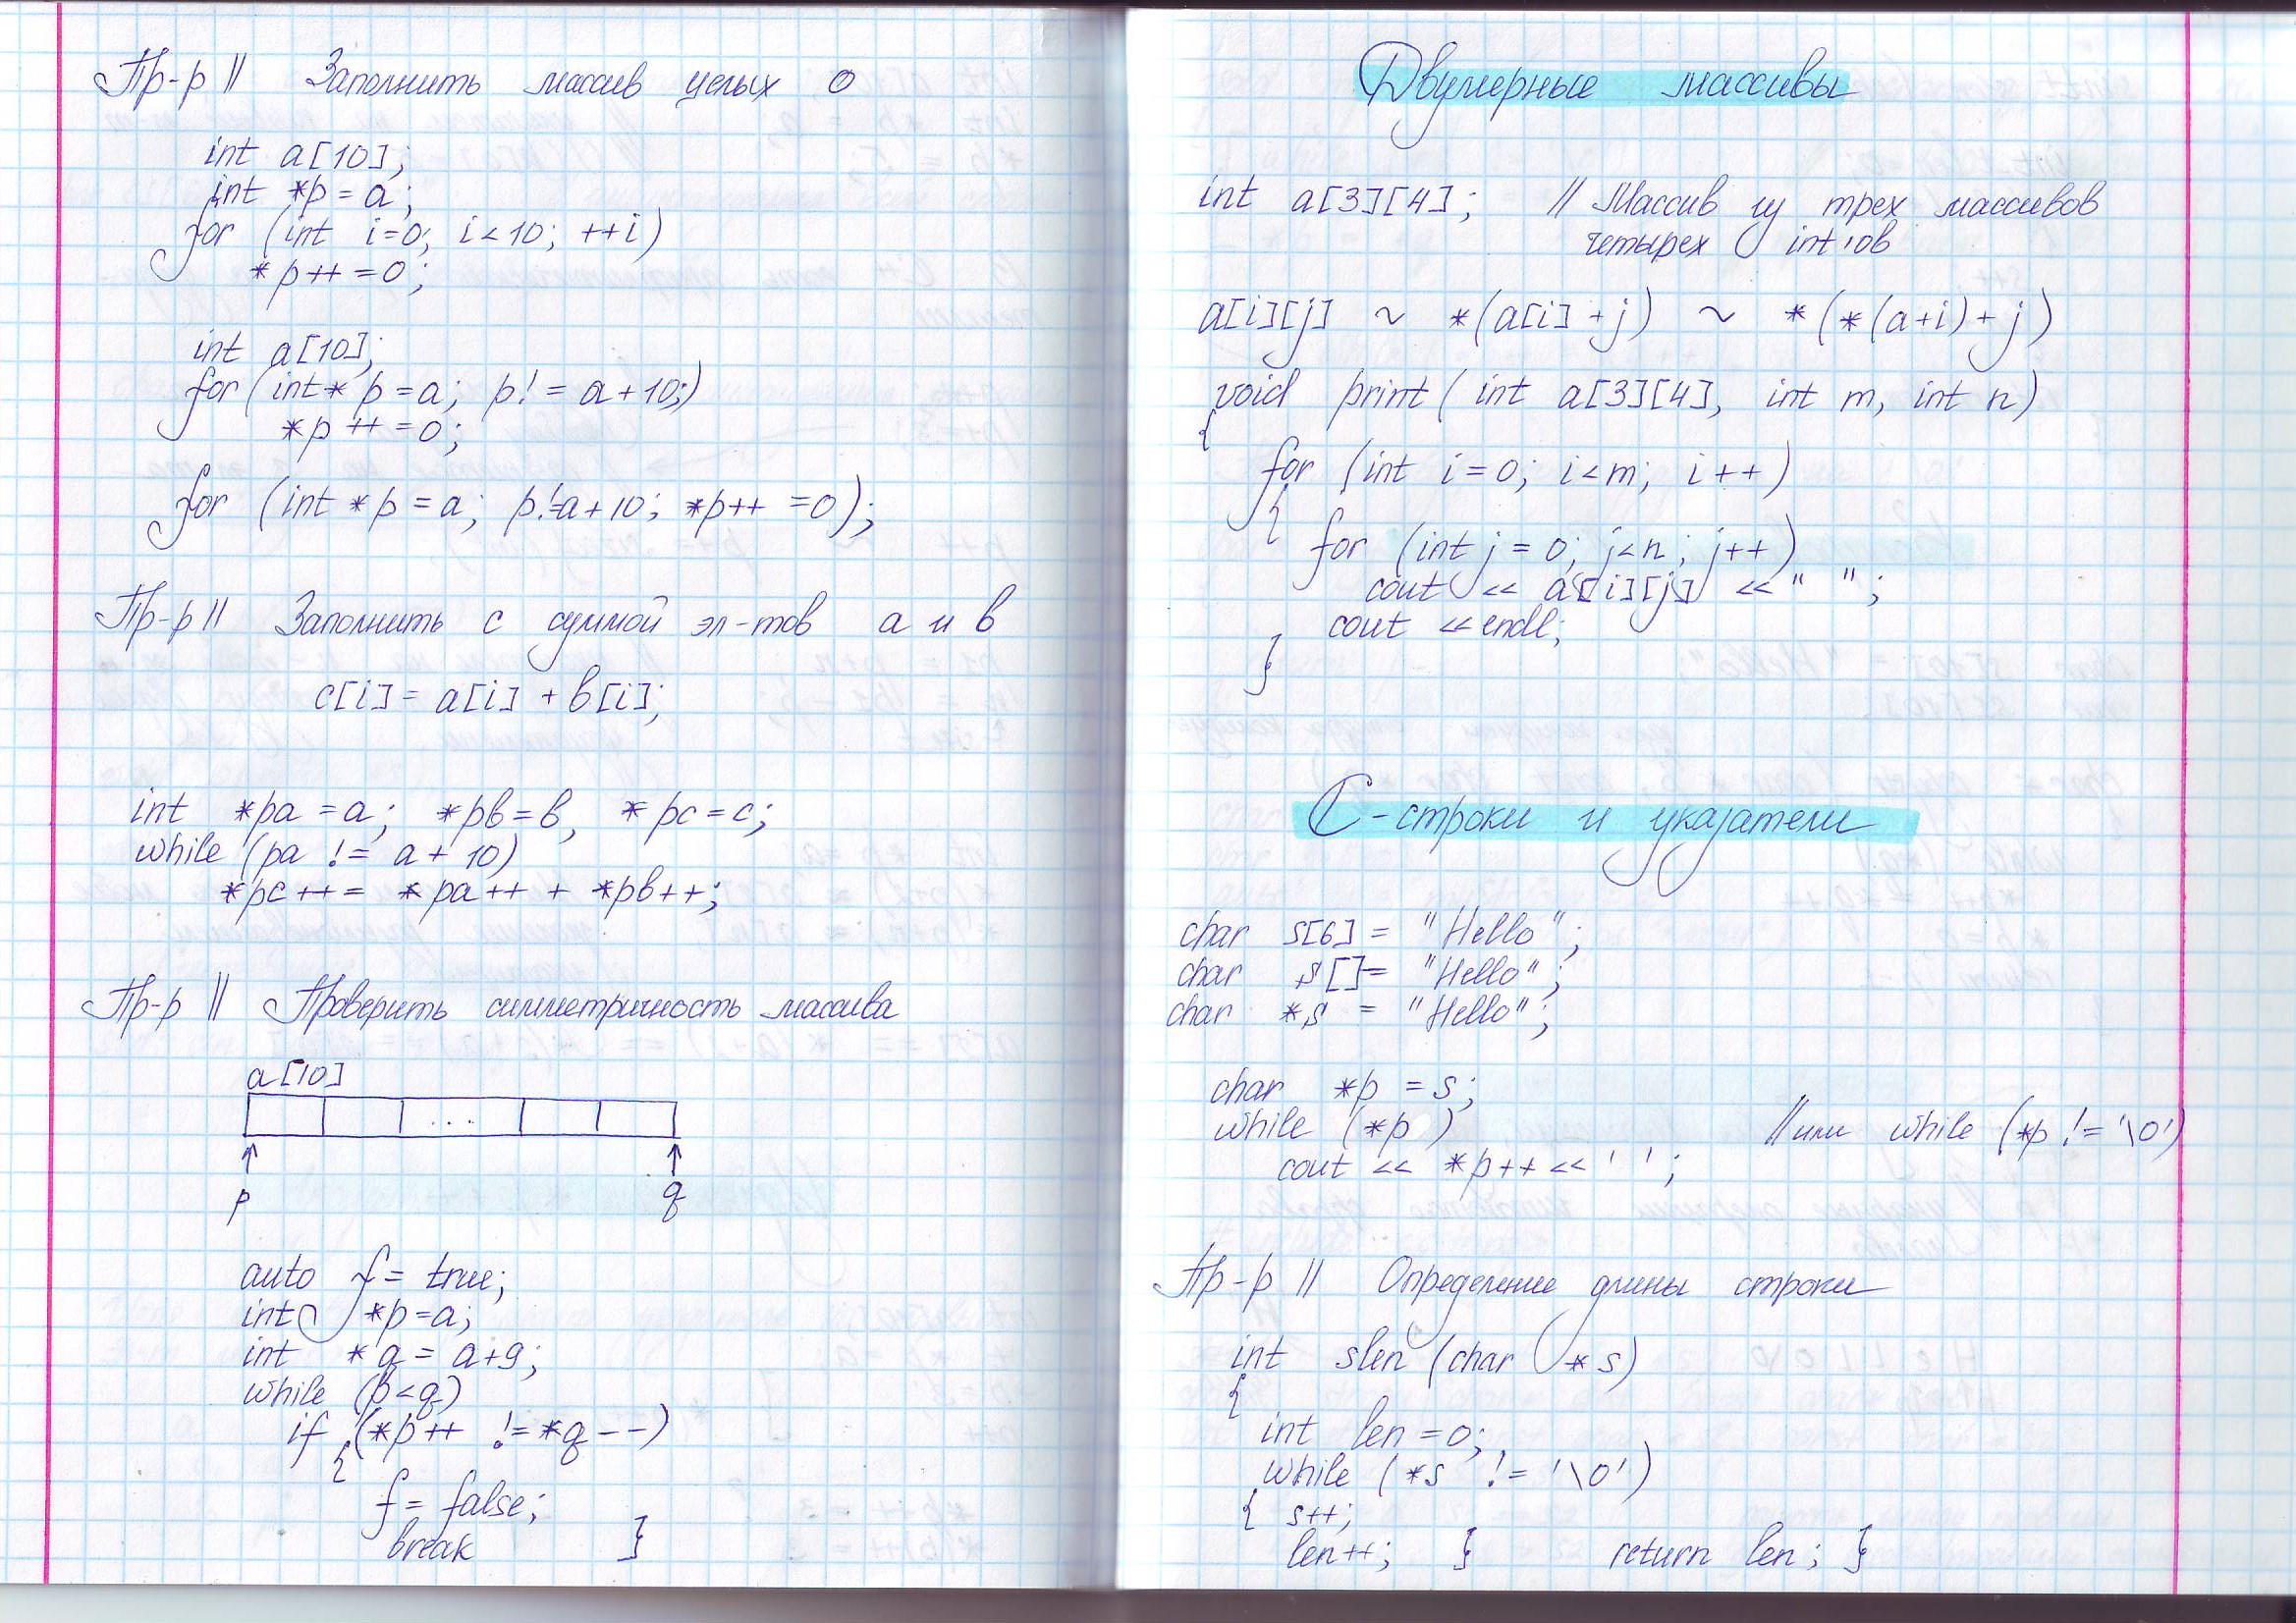 Пр-р || Заполнить массив целых 0
int a[10];
int *p = a;
for (int i=0; i<10; ++i)
*p++ = 0;
int a[10];
for (int* p = a; p! = a+10;)
*p++ = 0;
for (int *p = a; p!=a+10; *p++ = 0);
Пр-р || Заполнить c суммой эл-тов a и b
c[i] = a[i] + b[i];
int *pa = a; *pb = b, *pc = c;
while (pa != a + 10)
*pc++ = *pa++ + *pb++;
Пр-р || Проверить симметричность массива
a[10]
...
p q
auto f = true;
int *p = a;
int *q = a+9;
while (p<q)
if (*p++ != *q--)
{
f = false;
break }
Двумерные массивы
int a[3][4]; // Массив из трех массивов
четырех int'ов
a[i][j] ~ *(a[i]+j) ~ *(*(a+i)+j)
void print( int a[3][4], int m, int n)
{
for (int i=0; i<m; i++)
{
for (int j=0; j<n; j++)
cout << a[i][j] << " ";
cout << endl;
}
C-строки и указатели
char s[6] = "Hello";
char s[]= "Hello";
char *s = "Hello";
char *p = s;
while (*p) //или while (*p != '\0')
cout << *p++ << ' ';
Пр-р || Определение длины строки
int slen (char *s)
{
int len = 0;
while (*s != '\0')
{ s++;
len++; } return len; }